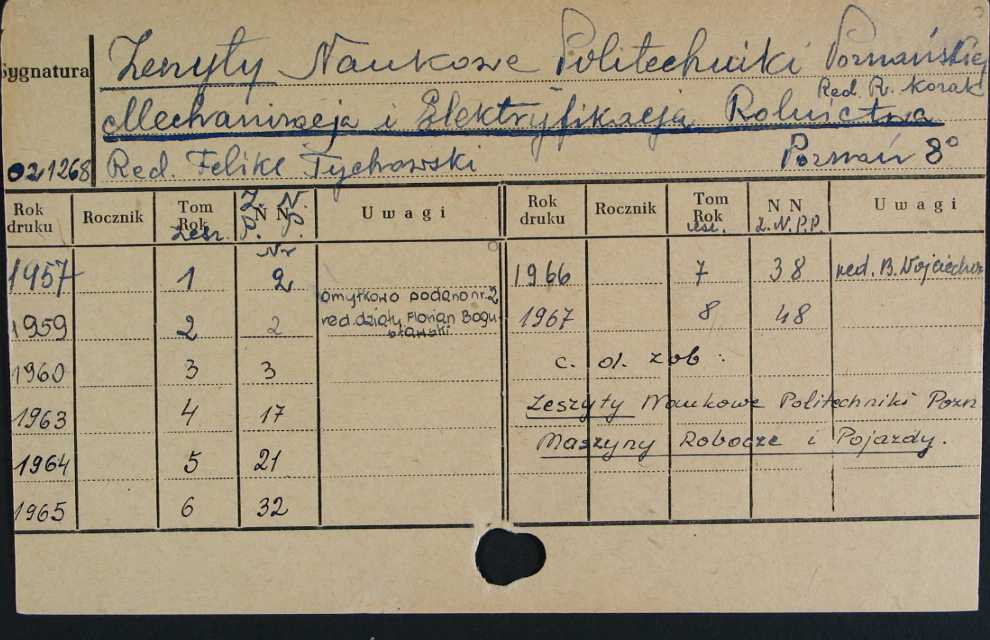 Sygnatura
Zeszyty Naukowe Politechniki Poznańskiej
Red. R. Kozak
Mechanizacja i Elektryfikacja Rolnictwa
021268 Red. Feliks Tychowski Poznań 8°
Rok druku Rocznik Tom Rok zesz. N N Z. N. P. P. Uwagi Rok druku Rocznik Tom Rok zesz. N N Z.N.P.P. Uwagi
Nr
1957 1 2 1966 7 38 red. B. Wojciechow
omyłkowo podano nr. 2
1959 2 2 red. działu Florian Bogu 1967 8 48
sławski
1960 3 3 c. d. zob:
1963 4 17 Zeszyty Naukowe Politechniki Pozn
Maszyny Robocze i Pojazdy.
1964 5 21
1965 6 32